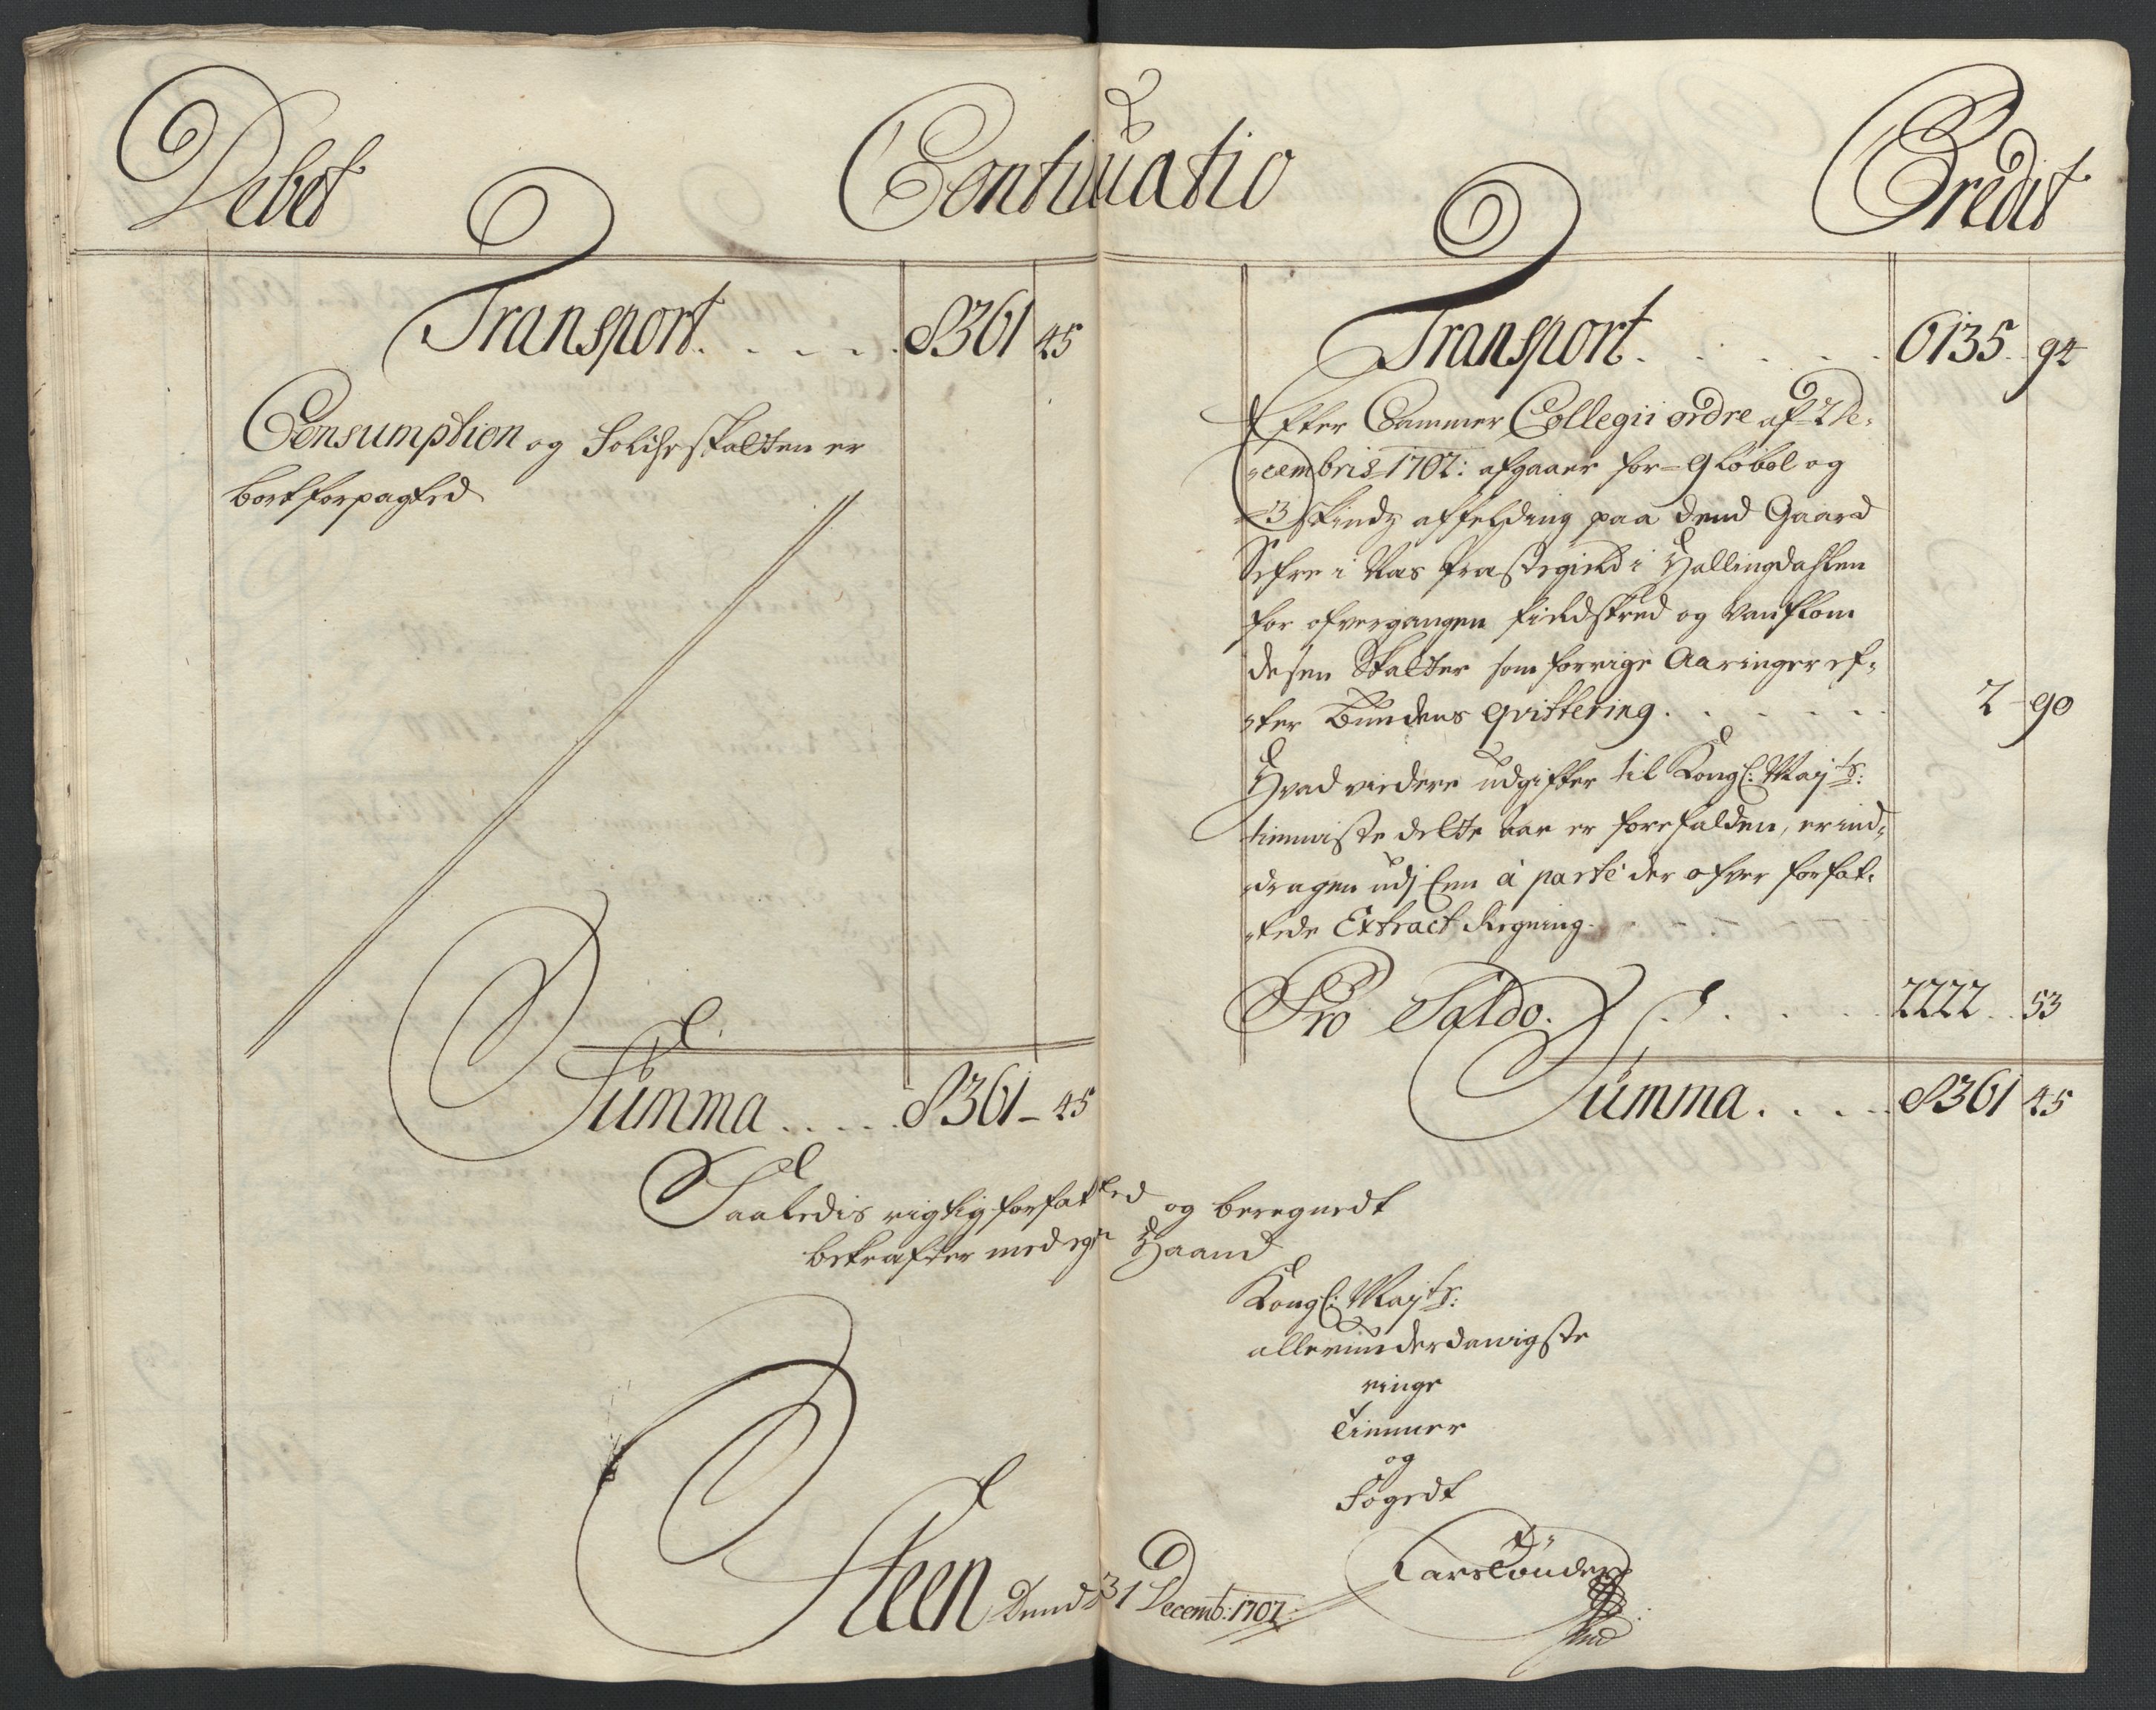 Debet
Continuatio
Credit
Transport. . . . . 8361 45
Consumption og Folcheskatten er
bortforpagted
Summa . . . . . 8361 – 45
Transport. . . . . . 6135. 94
Efter Cammer Collegii ordre af 2 De-
-cembris 1702: afgaaer for – 9 Løbøl og
3 skindz affelding paa dend Gaard
i Nas Præstegield i Hallingdahlen
for ofvergangen fieldskred og Vanflom
desen Skatter som forrige Aaringer ef-
-ter Bundens qvittering . . . . . . 2 – 90
Hvad viedere udgifter til Kongl: Mayts:
tienniste dette aar er forefalden, er ind-
-dragen udj Een à parte der ofver forfat-
-tede Extract Regning.
Pro Saldo. . . . . . 2222. . 53
Summa. . . . . 8361 45
Saaledis rigtig forfatted og beregnedt
bekræfter med egen Haand
Kongl: Mayts:
allerunderdanigste
ringe
Tienner
og
Fogedt
Steen Dend 31 Decemb: 1702:
Lars Tønder